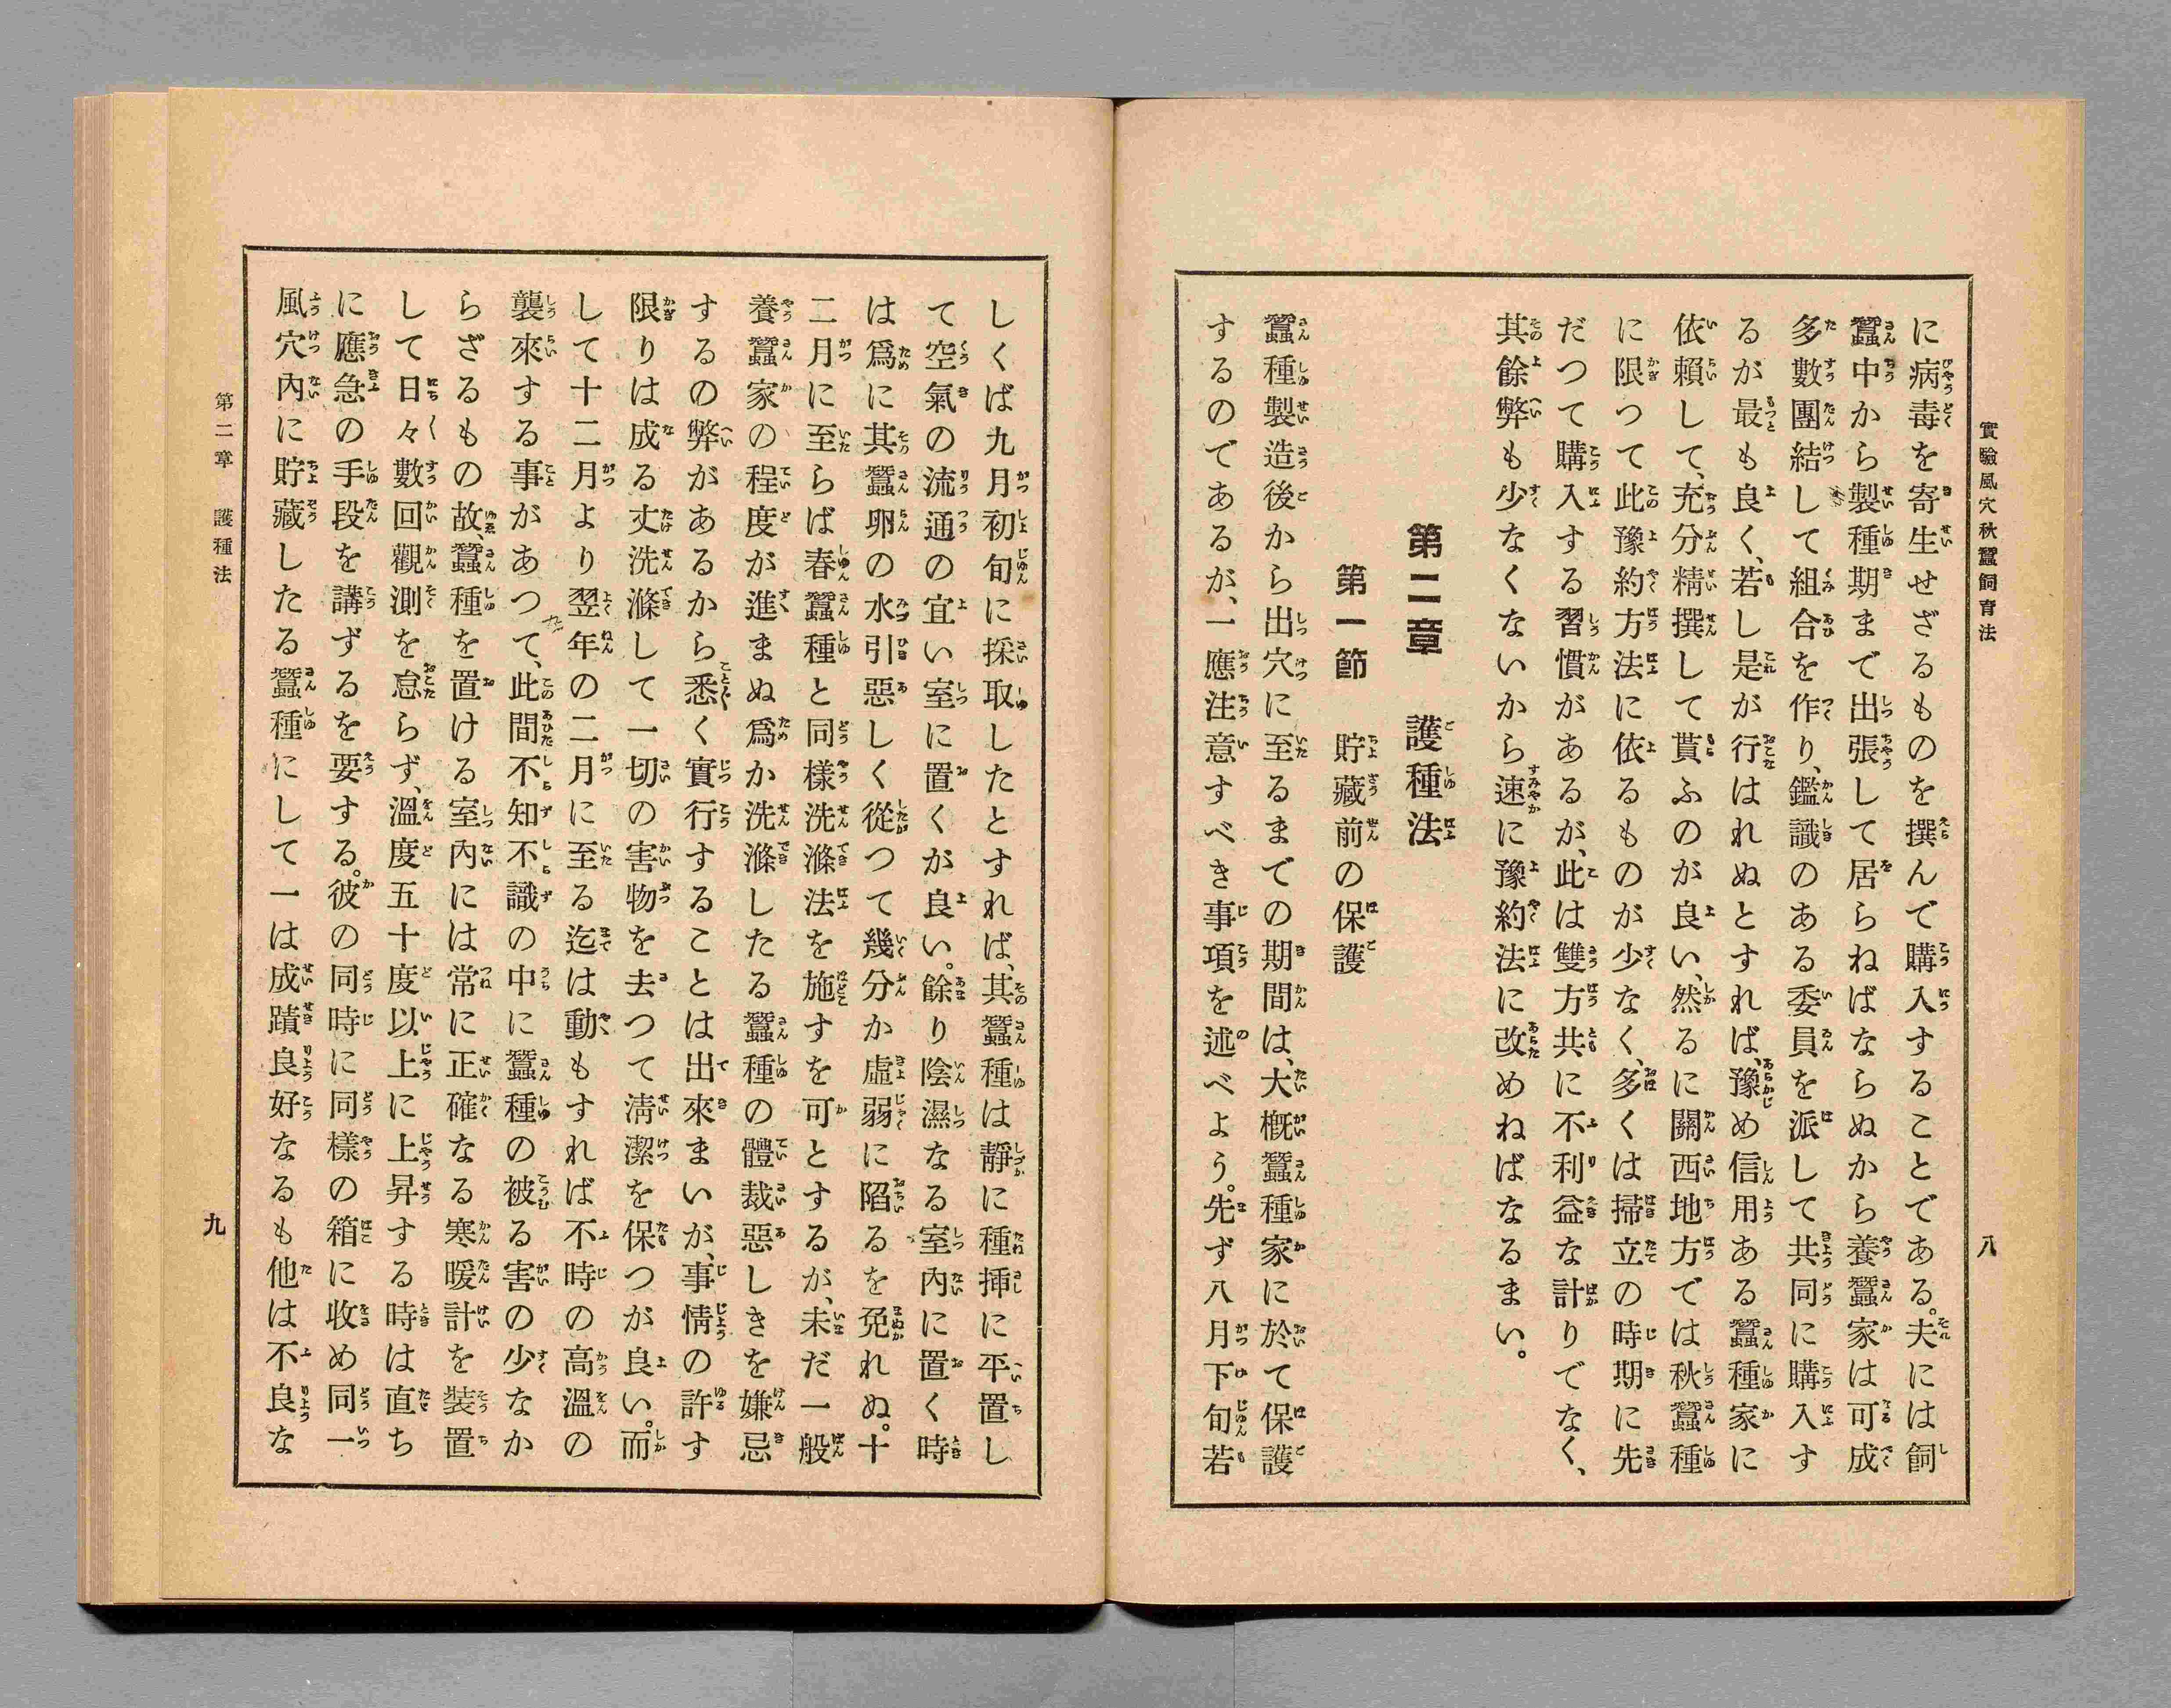 實驗風穴秋蠶飼育法
八
に病毒を寄生せざるものを撰んで購入することである。夫には飼
蠶中から製種期まで出張して居らねばならぬから養蠶家は可成
多數團結して組合を作り、鑑識のある委員を派して共同に購入す
るが最も良く、若し是が行はれぬとすれば、豫め信用ある蠶種家に
依賴して、充分精撰して貰ふのが良い、然るに關西地方では秋蠶種
に限つて此豫約方法に依るものが少なく、多くは掃立の時期に先
だつて購入する習慣があるが、此は雙方共に不利益な計りでなく、
其餘弊も少なくないから速に豫約法に改めねばなるまい。
第二章　護種法
第一節　貯藏前の保護
蠶種製造後から出穴に至るまでの期間は、大概蠶種家に於て保護
するのであるが、一應注意すべき事項を述べよう。先ず八月下旬若
しくば九月初旬に採取したとすれば、其蠶種は靜に種挿に平置し
て空氣の流通の宜い室に置くが良い。餘り陰濕なる室內に置く時
は爲に其蠶卵の水引惡しく從つて幾分か虛弱に陷るを免れぬ。十
二月に至らば春蠶種と同樣洗滌法を施すを可とするが、未だ一般
養蠶家の程度が進まぬ爲か洗滌したる蠶種の體裁惡しきを嫌忌
するの弊があるから悉く實行することは出來まいが、事情の許す
限りは成る丈洗滌して一切の害物を去つて淸潔を保つが良い。而
して十二月より翌年の二月に至る迄は動もすれば不時の高溫の
襲來する事があつて、此間不知不識の中に蠶種の被る害の少なか
らざるもの故、蠶種を置ける室內には常に正確なる寒暖計を裝置
して日々數回觀測を怠らず、溫度五十度以上に上昇する時は直ち
に應急の手段を講ずるを要する。彼の同時に同樣の箱に收め同一
風穴內に貯藏したる蠶種にして一は成蹟良好なるも他は不良な
第二章　護種法
九